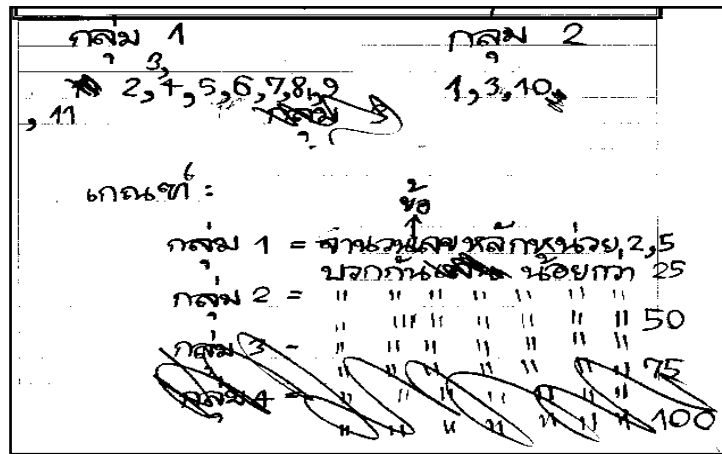 กลุ่ม 1 กลุ่ม 2
3,
2,4,5,6,7,8,9 1,3,10,
, 11 กลุ่ม
เกณฑ์ :
ข้อ
กลุ่ม 1 = จำนวนเลขหลักหน่วย, 2, 5
บวกกัน น้อยกว่า 25
กลุ่ม 2 = " " " " " " " 50
กลุ่ม 3 = " " " " " " " 75
กลุ่ม 4 = " " " " " " " 100